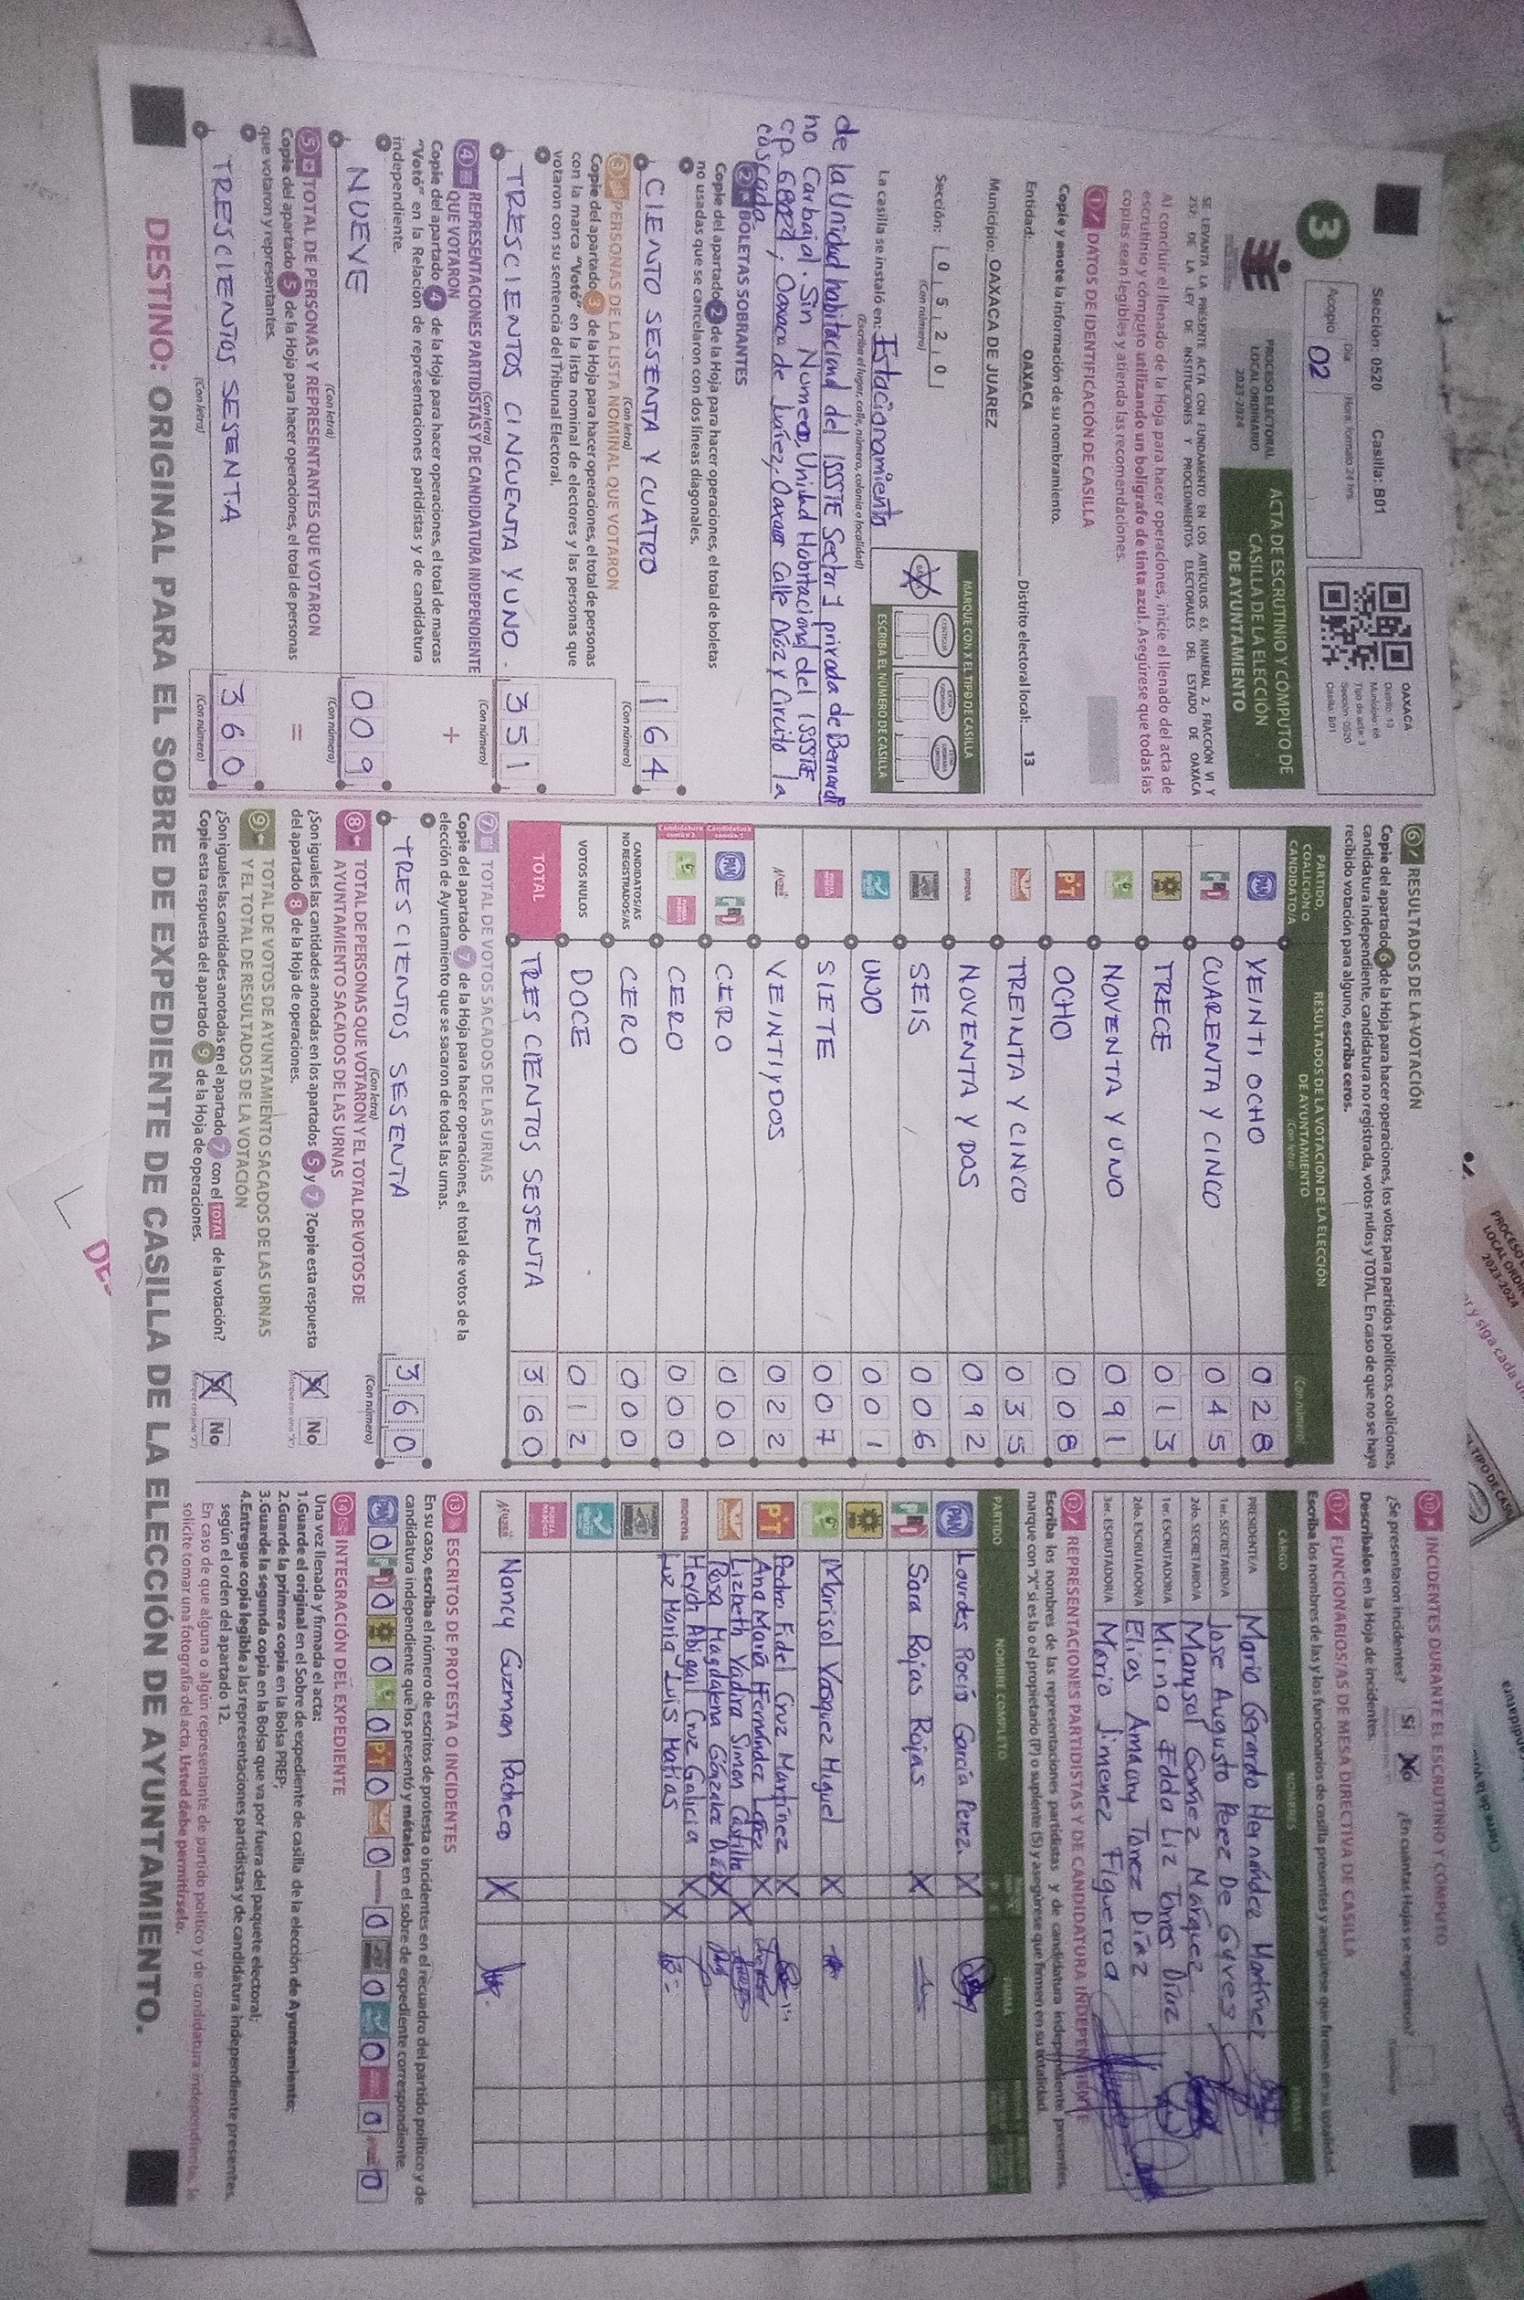 Sección: 0520 Casilla: B01
3
Acopio
Día
Hora, formato 24 hrs
02
OAXACA
Distrito: 13
Municipio: 68
Tipo de acta: 3
Sección: 0520
Casilla: B01
PROCESO ELECTORAL
LOCAL ORDINARIO
2023-2024
ACTA DE ESCRUTINIO Y CÓMPUTO DE
CASILLA DE LA ELECCIÓN
DE AYUNTAMIENTO
SE LEVANTA LA PRESENTE ACTA CON FUNDAMENTO EN LOS ARTÍCULOS 63, NUMERAL 2, FRACCIÓN VI Y
257, DE LA LEY DE INSTITUCIONES Y PROCEDIMIENTOS ELECTORALES DEL ESTADO DE OAXACA
Al concluir el llenado de la Hoja para hacer operaciones, inicie el llenado del acta de
escrutinio y cómputo utilizando un bolígrafo de tinta azul. Asegúrese que todas las
copias sean legibles y atienda las recomendaciones.
1 DATOS DE IDENTIFICACIÓN DE CASILLA
Copie y anote la información de su nombramiento.
Entidad: OAXACA Distrito electoral local: 13
Municipio: OAXACA DE JUAREZ
Sección: 0 5 2 0
(Con número)
MARQUE CON X EL TIPO DE CASILLA
ESCRIBA EL NÚMERO DE CASILLA
La casilla se instaló en: Estacionamiento
(Escriba el lugar, calle, número, colonia o localidad)
de la Unidad habitacional del ISSSTE Sector 1 privada de Bernardi
no Carbajal. Sin Numero, Unidad Habitacional del ISSSTE
Oaxaca de Juárez, Oaxaca Calle Díaz y Circuito la
cascada.
2 BOLETAS SOBRANTES
Copie del apartado 2 de la Hoja para hacer operaciones, el total de boletas
no usadas que se cancelaron con dos líneas diagonales.
CIENTO SESENTA Y CUATRO 1 6 4
(Con letra) (Con número)
3 PERSONAS DE LA LISTA NOMINAL QUE VOTARON
Copie del apartado 3 de la Hoja para hacer operaciones, el total de personas
con la marca "Votó" en la lista nominal de electores y las personas que
votaron con su sentencia del Tribunal Electoral.
TRESCIENTOS CINCUENTA Y UNO. 3 5 1
(Con letra) (Con número)
4 REPRESENTACIONES PARTIDISTAS Y DE CANDIDATURA INDEPENDIENTE
QUE VOTARON
+
Copie del apartado 4 de la Hoja para hacer operaciones, el total de marcas
"Votó" en la Relación de representaciones partidistas y de candidatura
independiente.
NUEVE 0 0 9
(Con letra) (Con número)
5 TOTAL DE PERSONAS Y REPRESENTANTES QUE VOTARON
=
Copie del apartado 5 de la Hoja para hacer operaciones, el total de personas
que votaron y representantes.
TRESCIENTOS SESENTA 3 6 0
(Con letra) (Con número)
6 RESULTADOS DE LA VOTACIÓN
Copie del apartado 6 de la Hoja para hacer operaciones, los votos para partidos políticos, coaliciones,
candidatura independiente, candidatura no registrada, votos nulos y TOTAL. En caso de que no se haya
recibido votación para alguno, escriba ceros.
PARTIDO,
COALICIÓN O
CANDIDATO/A
RESULTADOS DE LA VOTACIÓN DE LA ELECCIÓN
DE AYUNTAMIENTO
(Con letra) (Con número)
PAN VEINTI OCHO 0 2 8
PRI CUARENTA Y CINCO 0 4 5
TRECE 0 1 3
NOVENTA Y UNO 0 9 1
PT OCHO 0 0 8
TREINTA Y CINCO 0 3 5
morena NOVENTA Y DOS 0 9 2
SEIS 0 0 6
UNO 0 0 1
SIETE 0 0 7
VEINTIYDOS 0 2 2
PAN PRI CERO 0 0 0
CERO 0 0 0
CANDIDATOS/AS
NO REGISTRADOS/AS CERO 0 0 0
VOTOS NULOS DOCE 0 1 2
TOTAL TRES CIENTOS SESENTA 3 6 0
7 TOTAL DE VOTOS SACADOS DE LAS URNAS
Copie del apartado 7 de la Hoja para hacer operaciones, el total de votos de la
elección de Ayuntamiento que se sacaron de todas las urnas.
TRES CIENTOS SESENTA 3 6 0
(Con letra) (Con número)
8 TOTAL DE PERSONAS QUE VOTARON Y EL TOTAL DE VOTOS DE
AYUNTAMIENTO SACADOS DE LAS URNAS
¿Son iguales las cantidades anotadas en los apartados 5 y 7? Copie esta respuesta
del apartado 8 de la Hoja de operaciones.
No
9 TOTAL DE VOTOS DE AYUNTAMIENTO SACADOS DE LAS URNAS
Y EL TOTAL DE RESULTADOS DE LA VOTACIÓN
¿Son iguales las cantidades anotadas en el apartado 7 con el TOTAL de la votación?
Copie esta respuesta del apartado 9 de la Hoja de operaciones.
No
10 INCIDENTES DURANTE EL ESCRUTINIO Y CÓMPUTO
¿Se presentaron incidentes? Sí No ¿En cuántas Hojas se registraron?
Descríbalos en la Hoja de incidentes.
11 FUNCIONARIOS/AS DE MESA DIRECTIVA DE CASILLA
Escriba los nombres de las y los funcionarios de casilla presentes y asegúrese que firmen en su totalidad.
CARGO NOMBRES FIRMAS
PRESIDENTE/A Mario Gerardo Hernández Martínez
1er. SECRETARIO/A Jose Augusto Perez De Gyves
2do. SECRETARIO/A Marysol Gomez Márquez
1er. ESCRUTADOR/A Mirna Edda Liz Torres Díaz
2do. ESCRUTADOR/A Elias Amaury Tonez Díaz
3er. ESCRUTADOR/A Mario Jimenez Figueroa
12 REPRESENTACIONES PARTIDISTAS Y DE CANDIDATURA INDEPENDIENTE
Escriba los nombres de las representaciones partidistas y de candidatura independiente presentes,
marque con "X" si es la o el propietario (P) o suplente (S) y asegúrese que firmen en su totalidad.
PARTIDO NOMBRE COMPLETO FIRMA
PAN Lourdes Rocío García Perez. X
PRI Sara Rojas Rojas X
Marisol Vasquez Miguel X
PT Pedro Fidel Cruz Martínez X
Ana María Hernández López X
Lizbeth Yadira Simon Castillo X
Rosa Magdalena González Díaz X
morena Heydi Abigail Cruz Galicia X
Luz Maria Luis Matias X
Nancy Guzman Pacheco X
13 ESCRITOS DE PROTESTA O INCIDENTES
En su caso, escriba el número de escritos de protesta o incidentes en el recuadro del partido político y de
candidatura independiente que los presentó y métalos en el sobre de expediente correspondiente.
PAN 0 PRI 0 0 0 PT 0 0 0 0 0 0 0
14 INTEGRACIÓN DEL EXPEDIENTE
Una vez llenada y firmada el acta:
1.Guarde el original en el Sobre de expediente de casilla de la elección de Ayuntamiento;
2.Guarde la primera copia en la Bolsa PREP;
3.Guarde la segunda copia en la Bolsa que va por fuera del paquete electoral;
4.Entregue copia legible a las representaciones partidistas y de candidatura independiente presentes,
según el orden del apartado 12.
En caso de que alguna o algún representante de partido político y de candidatura independiente, le
solicite tomar una fotografía del acta, Usted debe permitírselo.
DESTINO: ORIGINAL PARA EL SOBRE DE EXPEDIENTE DE CASILLA DE LA ELECCIÓN DE AYUNTAMIENTO.